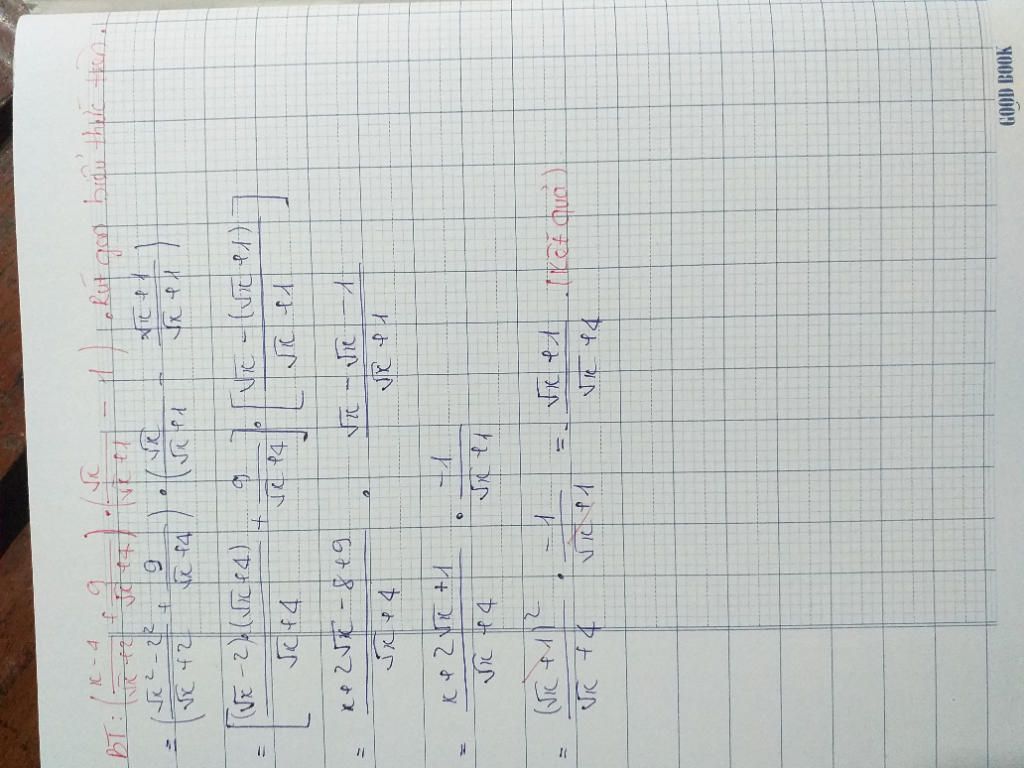 BT: (x-4/√x+2 + 9/√x+4) . (√x/√x+1 - 1). Rút gọn biểu thức trên.
= (√x² - 2²/√x+2 + 9/√x+4) . (√x/√x+1 - √x+1/√x+1)
= [(√x-2).(√x+4)/√x+4 + 9/√x+4] . [√x-(√x+1)/√x+1]
= x+2√x-8+9/√x+4 . √x-√x-1/√x+1
= x+2√x+1/√x+4 . -1/√x+1
= (√x+1)²/√x+4 . -1/√x+1 = - √x+1/√x+4 . (Kết quả)
GOOD BOOK